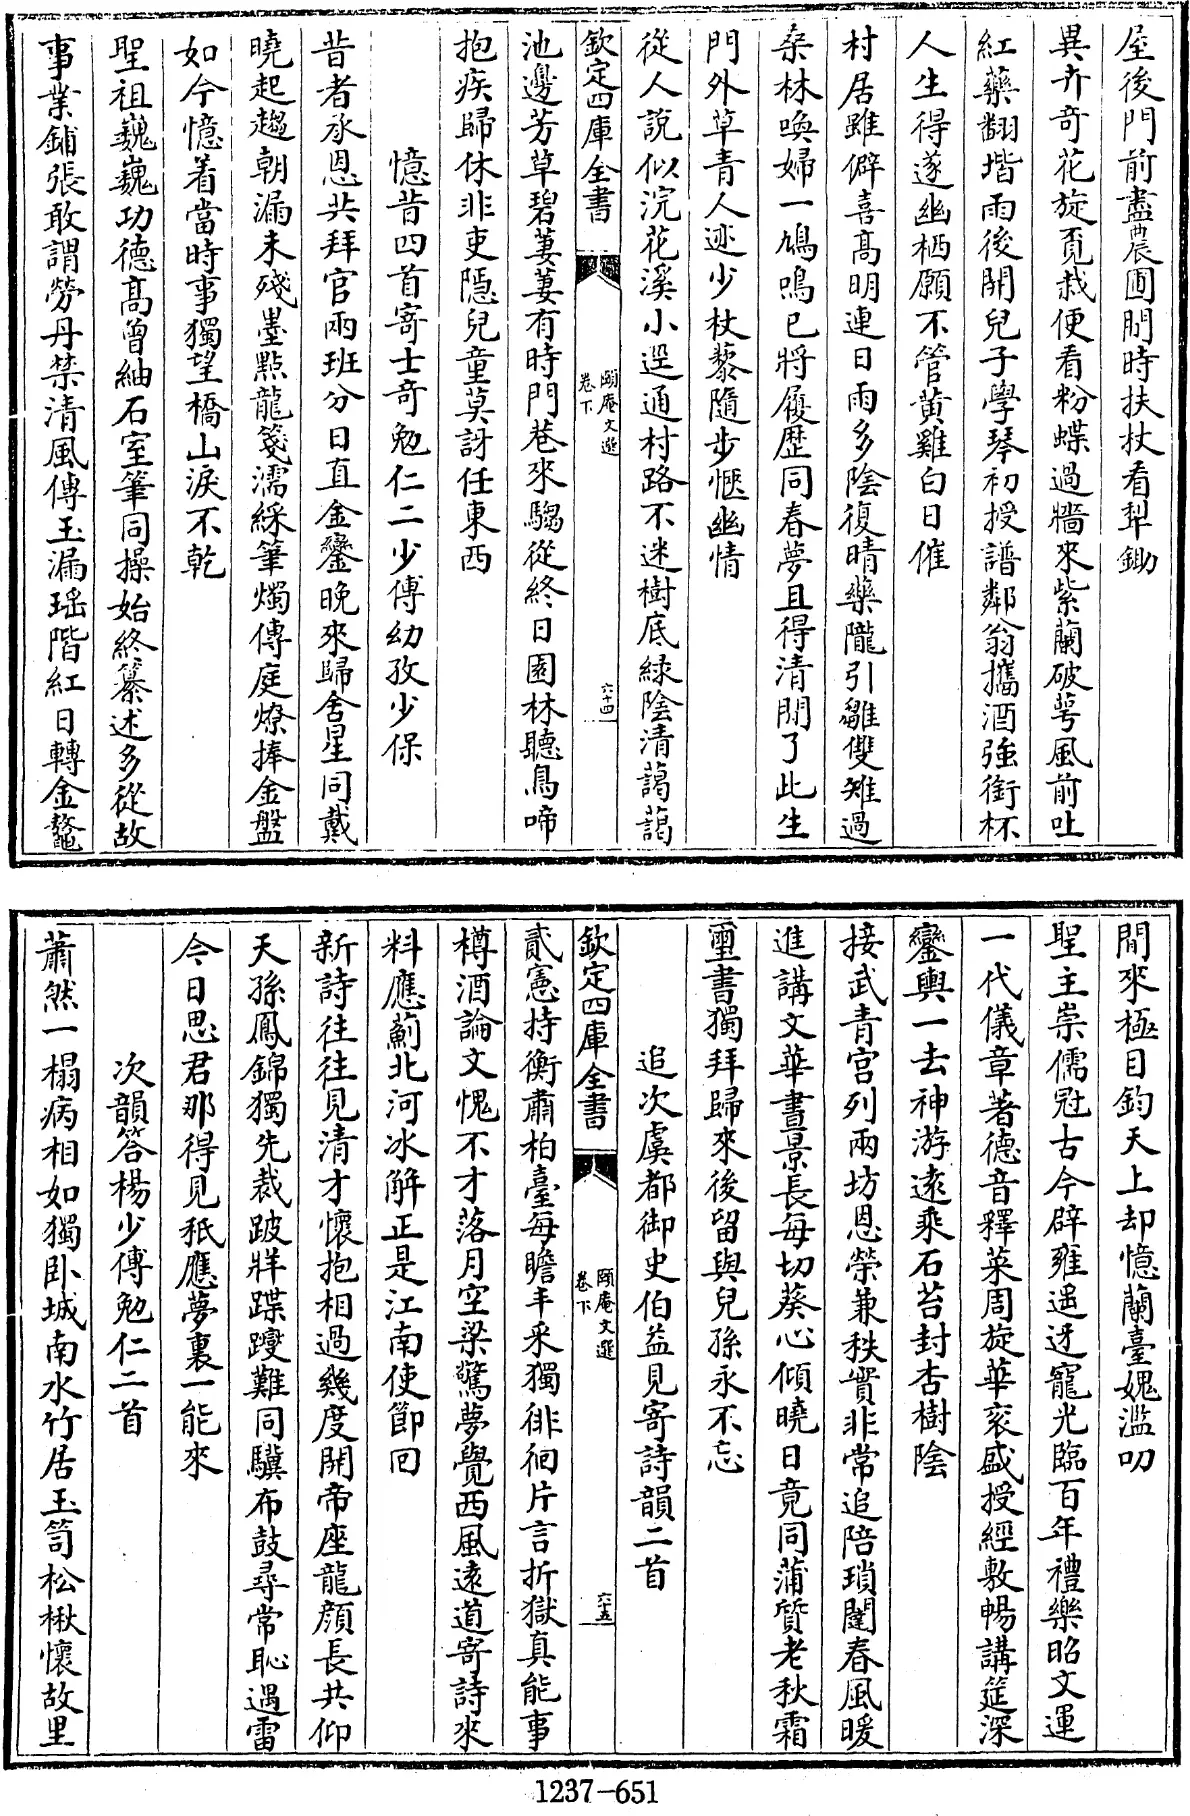 屋後門前盡農圃閒時扶杖看犁鋤
異卉奇花旋覓栽便看粉蝶過牆來紫蘭破萼風前吐
紅藥翻堦雨後開兒子學琴初授譜鄰翁攜酒強銜杯
人生得遂幽栖願不管黄雞白日催
村居雖僻喜髙明連日雨多陰復晴藥隴引雛雙雉過
桑林喚婦一鳩鳴已將履歴同春夢且得清閒了此生
門外草青人迹少杖藜隨步愜幽情
從人說似浣花溪小逕通村路不迷樹底緑陰清藹藹
欽定四庫全書
頤庵文選
卷下
六十四
池邊芳草碧萋萋有時門巷來騶從終日園林聽鳥啼
抱疾歸休非吏隠兒童莫訝任東西
憶昔四首寄士奇勉仁二少傅幼孜少保
昔者承恩共拜官兩班分日直金鑾晚來歸舍星同戴
曉起趨朝漏未殘墨點龍箋濡綵筆燭傳庭燎捧金盤
如今憶着當時事獨望橋山淚不乾
聖祖巍巍功德髙曾紬石室筆同操始終纂述多從故
事業鋪張敢謂勞丹禁清風傳玉漏瑶階紅日轉金鼇
閒來極目鈞天上却憶蘭臺媿濫叨
聖主崇儒冠古今辟雍遥迓寵光臨百年禮樂昭文運
一代儀章著德音釋菜周旋華衮盛授經敷暢講筵深
鑾輿一去神游逺乘石苔封杏樹陰
接武青宫列兩坊恩榮兼秩實非常追陪瑣闥春風暖
進講文華晝景長每切葵心傾曉日竟同蒲質老秋霜
璽書獨拜歸來後留與兒孫永不忘
追次虞都御史伯益見寄詩韻二首
欽定四庫全書
頤庵文選
卷下
六十五
貳憲持衡肅柏臺每瞻丰采獨徘徊片言折獄真能事
樽酒論文愧不才落月空梁驚夢覺西風逺道寄詩來
料應薊北河冰解正是江南使節回
新詩往往見清才懷抱相過幾度開帝座龍顔長共仰
天孫鳳錦獨先裁跛牂蹀躞難同驥布鼓尋常恥過雷
今日思君那得見秖應夢裏一能來
次韻答楊少傅勉仁二首
蕭然一榻病相如獨卧城南水竹居玉笥松楸懷故里
1237-651